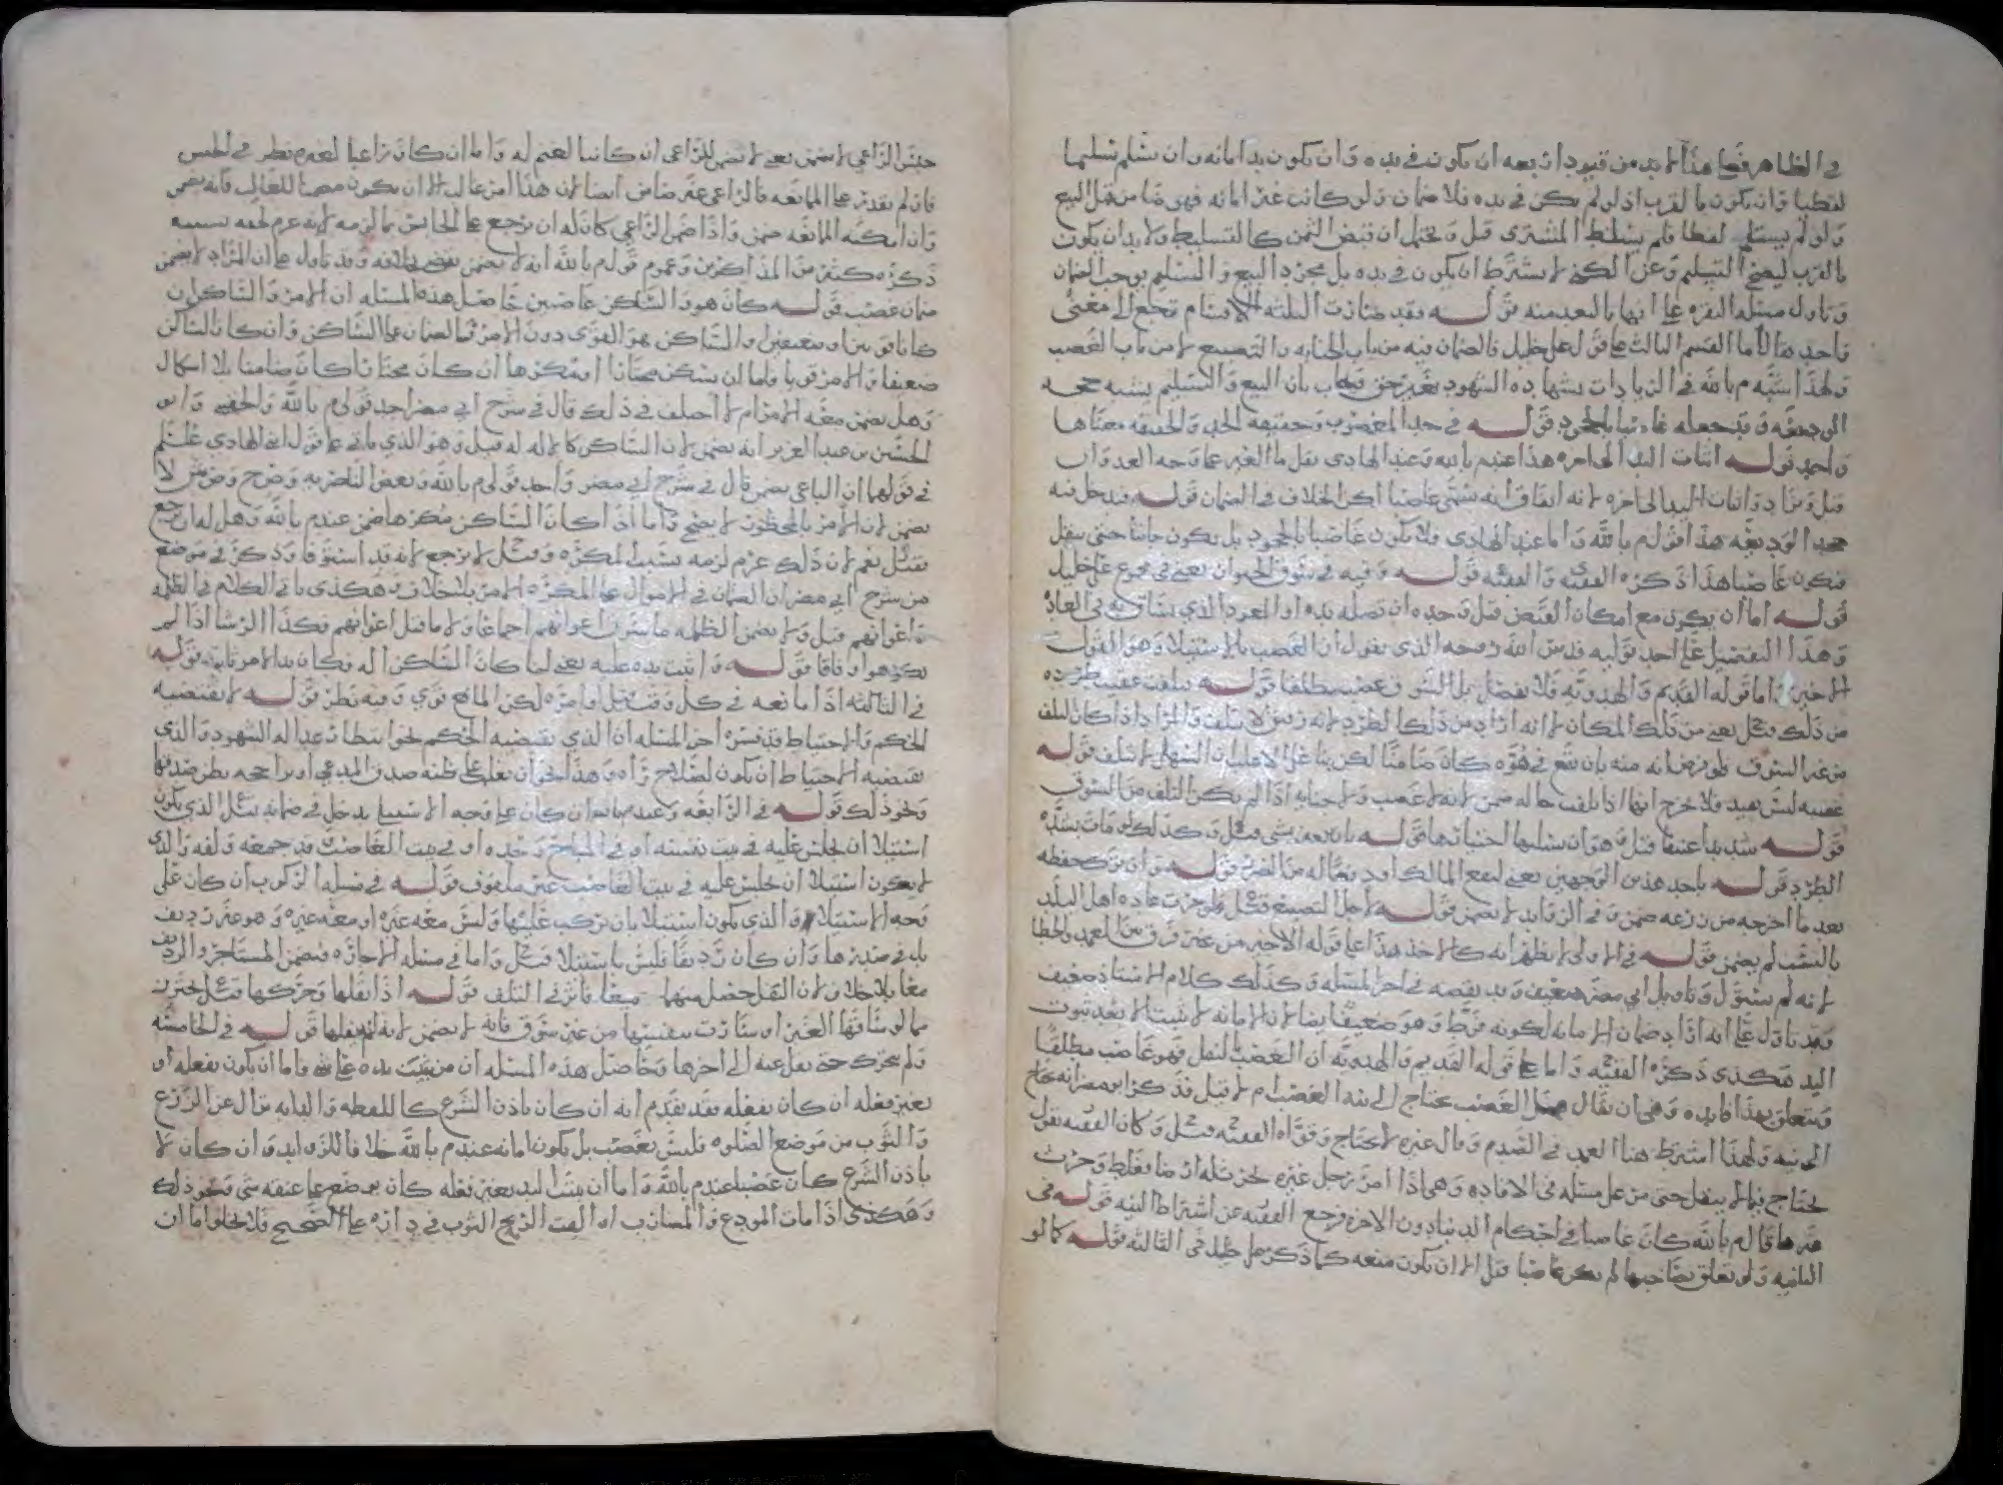 في الظاهر فعلى هذا لا بد من قيود اربعه ان يكون في يده وان يكون يد امانه وان يسلم تسليما
لفظيا وان يكون بالقرب اذ لو لم يكن في يده فلا ضمان ولو كانت غير امانه فهو ضامن قبل البيع
ولو لم يسلم لفظا فلم يسلط المشتري قيل ويحتمل ان قبض الثمن كالتسليط ولا بد ان يكون
بالقرب ليصح التسليم وعن الكني لا يشترط ان يكون في يده بل مجرد البيع والتسليم يوجب الضمان
وتاول مسله البقره على انها بالبعد منه قوله فقد صارت الثلثه الاقسام ترجع الى معنى
واحد اما القسم الثالث على قول علي خليل فالضمان فيه من باب الجنايه والتضييع لا من باب الغصب
ولهذا شبهه م بالله في الزيادات بشهاده الشهود بغير حق
الوديعه وقد جعله غاصبا بالجحود قوله في حد المغصوب وحقيقه الحد والحقيقه معناها
واحد قوله اثبات اليد الى اخره هذا عند م بالله وعند الهادي نقل مال الغير على وجه العدوان
قيل وزاد واثبات اليد الى اخره لانه اتفاق انه يسمى غاصبا لكن الخلاف في الضمان قوله فيدخل فيه
جحد الوديعه هذا قول م بالله واما عند الهادي فلا يكون غاصبا بالجحود بل يكون جانيا حتى ينقل
فيكون غاصبا هكذا ذكره الفقيه والفقيه قوله وفيه في سوق الحيوان يعني في مجموع علي خليل
قوله اما ان يكون مع امكان القبض قيل وحده ان تصله يده او العود الذي يساق به في العاده
وهذا التفصيل على احد قوليه قدس الله روحه الذي يقول ان الغصب بالاستيلا وهو القول
الاخير واما قوله القديم والهدويه فلا تفصيل بل السوق غصب مطلقا قوله تلفت عقيب طرده
من ذلك قيل يعني من ذلك المكان لا انه اراد من ذلك الطرد والمراد اذا كان التلف
من غير السوق فلو فرضنا انه منه بان تقع في هوه كان ضامنا لكن بنا على الاغلب ان السهل لا تتلف قوله
عقيبه ليس بقيد فلا يخرج انها اذا تلفت حاله ضمن لانه لا غصب ولا جنايه اذا لم يكن التلف من السوق
قوله شديدا عنيفا قيل هو ان يسلبها اختيارها قوله
الطرد قوله باحد هذين الوجهين يعني لنفع المالك او دفعا له من الضرر قوله وان ترك حفظه
بعد ما اخرجه من زرعه ضمن وفي الزوايد لا يضمن قوله لاجل التضييع قيل ولو جرت عاده اهل البلد
بالتسيب لم يضمن قوله في الاولى لا يظهر انه كالاخذ هذا على قوله الاخير من غير فرق بين العمد والخطا
لانه لم يسق وتاويل ابي مضر ضعيف وقد نقضه في اخر المسله وكذلك كلام الاستاذ ضعيف
وقد تاول على انه اراد ضمان الامانه لكونه فرط وهو ضعيف ايضا لان الامانه لا تثبت الا بعد ثبوت
اليد هكذى ذكره الفقيه واما على قوله القديم والهدويه ان الغصب بالنقل فهو غاصب مطلقا
ويتعلق بهذا فايده وهي ان يقال هل الغصب يحتاج الى نيه الغصب ام لا قيل قد ذكر ابو مضر انه يحتاج
الى نيه ولهذا اشترط هنا العمد في الصدم وقال غيره لا يحتاج وقواه الفقيه قيل وكان الفقيه يقول
يحتاج فيما لا ينقل حتى مر على مسله في الافاده وهي اذا امر رجل غيره بحرث له ارضا فغلط وحرث
غيرها قال م بالله كان غاصبا في احكام الدنيا دون الاخره فرجع الفقيه عن اشتراط النيه قوله في
الثانيه ولو تعلق بصاحبها لم يكن غاصبا قيل الا ان يكون منعه كما ذكر علي خليل في الثالثه قوله كما لو
حبس الراعي لا يضمن يعني لا يضمن للراعي ان كانت الغنم له واما ان كان راعيا لغيره نظر في الحبس
فان لم يقدر على الممانعه فالراعي غير ضامن ايضا لان هذا امر غالب الا ان يكون مضمنا للغالب فانه يضمن
وان امكنه الممانعه ضمن واذا ضمن الراعي كان له ان يرجع على الحابس بما لزمه لانه غرم لحقه بسببه
ذكره كثير من المذاكرين وعموم قول م بالله انه لا يضمن يقضي بخلافه وقد تاول على ان المراد لا يضمن
ضمان غصب قوله كان هو والساكن غاصبين حاصل هذه المسله ان الامر والساكن ان
كانا قويين او ضعيفين او الساكن هو القوي دون الامر فالضمان على الساكن وان كان الساكن
ضعيفا والامر قويا فاما ان يسكن مختارا او مكرها ان كان مختارا كان ضامنا بلا اشكال
وهل يضمن معه الامر ام لا اختلف في ذلك قال في شرح ابي مضر احد قولي م بالله والحقيني وابو
الحسين بن عبد العزيز انه يضمن لان الساكن كالاله له قيل وهو الذي ياتي على قول ابني الهادي عليلم
في قولهما ان الباغي يضمن قال في شرح ابي مضر واحد قولي م بالله وبعض الناصريه وص ح وص ش لا
يضمن لان الامر بالمحظور لا يصح واما اذا كان الساكن مكرها ضمن عند م بالله وهل له ان يرجع
فقيل نعم لان ذلك غرم لزمه بسبب المكره وقيل لا يرجع لانه قد استوفا وذكر في موضع
من شرح ابي مضر ان الضمان في الاموال على المكره الامر بلا خلاف وهكذى ياتي الكلام في الظلمه
واعوانهم قيل ولا يضمن الظلمه ما سرق اعوانهم اجماعا ولا ما قتل اعوانهم وكذا الروسا اذا لم
يكرهوا وفاقا قوله واثبت يده عليه يعني لما كان الساكن اله فكان يد الامر ثابته قوله
في الثالثه اذا مانعه في كل وقت قيل اوامره لكن المانع قوي وفيه نظر قوله لا يقتضيه
الحكم والاحتياط قد فسره اخر المسله ان الذي يقتضيه الحكم نحو ان يطا عداله الشهود والذي
يقتضيه الاحتياط ان يكون لصلاح راه وهذا نحو ان يغلب على ظنه صدق المدعي
ونحو ذلك قوله في الرابعه وعندنا ان كان على وجه الاستيلا يدخل في ضمانه قيل الذي يكون
استيلا ان يجلس عليه في بيت نفسه او في المباح وحده او في بيت الغاصب قد جمعه ولفه والذي
لا يكون استيلا ان يجلس عليه في بيت الغاصب غير ملفوف قوله في مسله الركوب ان كان على
وجه الاستيلا والذي يكون استيلا بان تركب عليها وليس معه غيره او معه غيره وهو غير رديف
بل في صدرها وان كان رديفا فليس باستيلا قيل واما في مسله الاجاره فيضمن المستاجر والرديف
معا بلا خلاف لان الثقل حصل منهما معا فاثر في التلف قوله اذا نقلها وحركها قيل يحترز
مما لو ساقها الغير او سارت بنفسها من غير سوق فانه لا يضمن لانه لم ينقلها قوله في الخامسه
ولم يتحرك حتى نقل عنه الى اخرها وحاصل هذه المسله ان من ثبتت يده على شي فاما ان يكون بفعله او
بغير فعله ان كان بفعله فقد تقدم انه ان كان باذن الشرع كاللقطه والدابه تزال عن الزرع
والثوب من موضع الصلوه فليس بغصب بل يكون امانه عند م بالله خلاف الزوايد وان كان لا
باذن الشرع كان غصبا عند م بالله واما ان يثبت اليد بغير فعله كان يوضع على عنقه شي ونحو ذلك
وهكذى اذا مات المودع والمضارب او القت الريح الثوب في داره على الصحيح فلا يخلوا اما ان